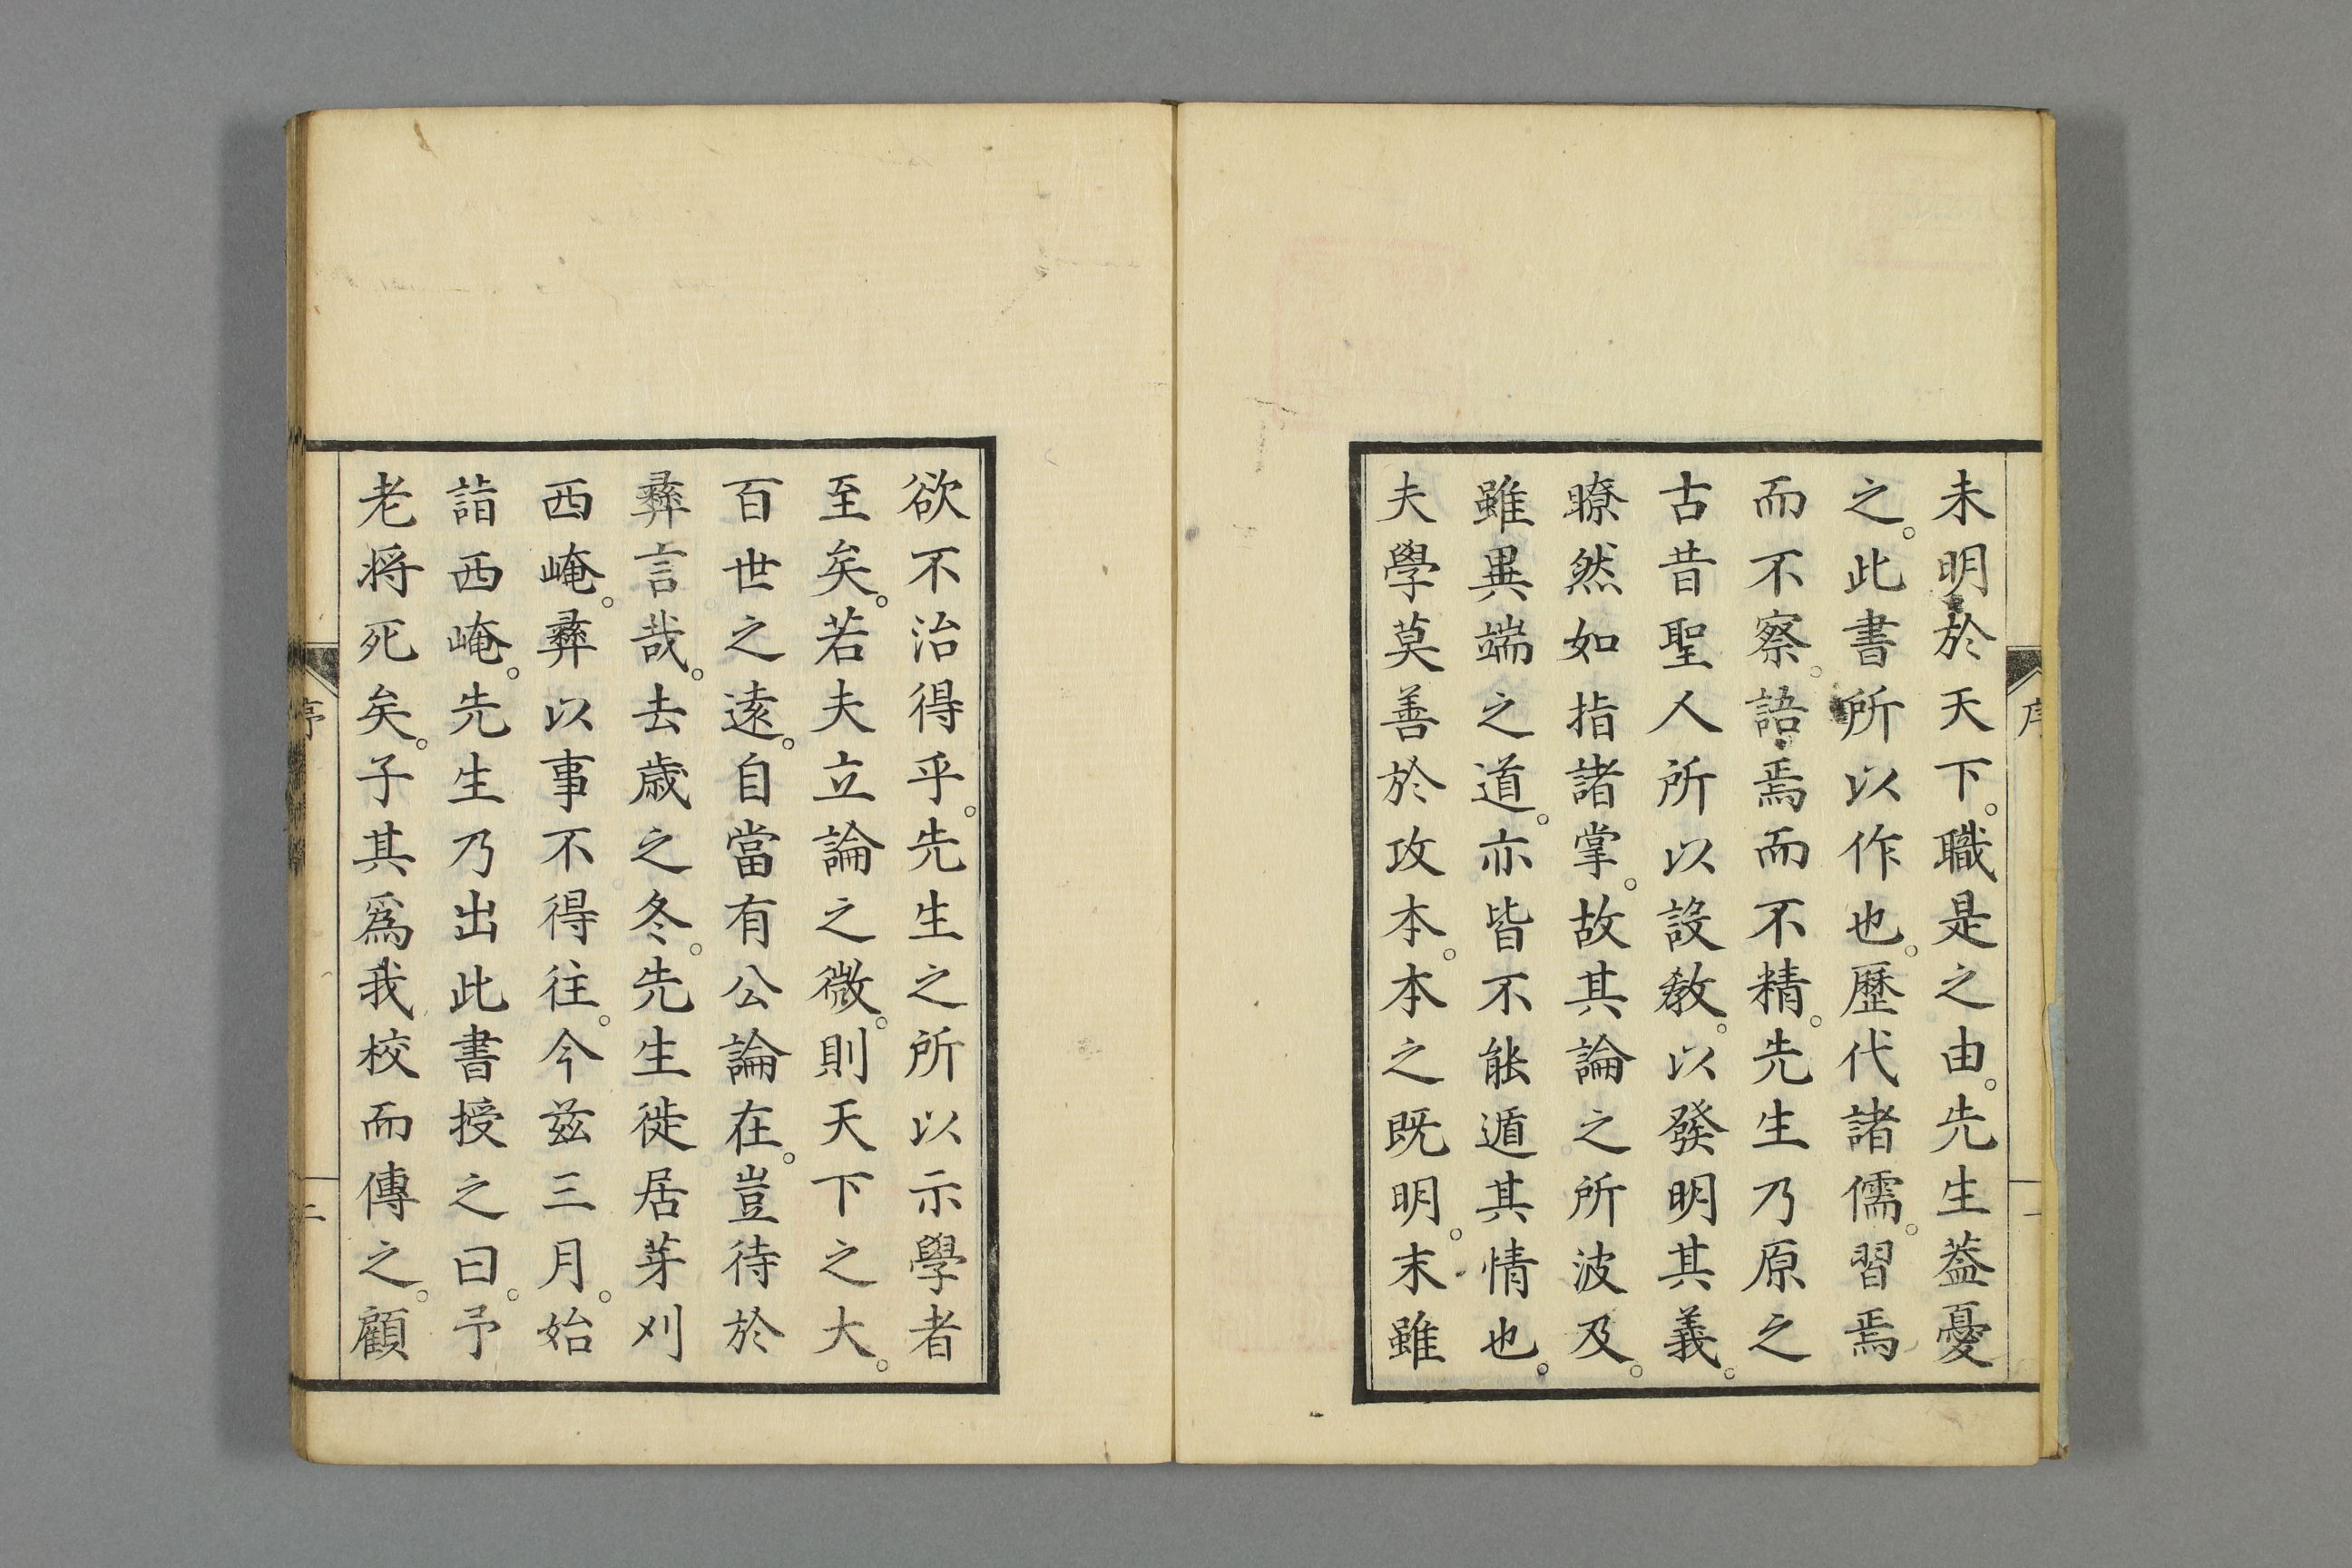 未明於天下。職是之由。先生葢憂
之。此書所以作也。歷代諸儒。習焉
而不察。語焉而不精。先生乃原之
古昔聖人所以設教。以發明其義。
瞭然如指諸掌。故其論之所波及。
雖異端之道。亦皆不能遁其情也。
夫學莫善於攻本。本之既明。末雖
欲不治得乎。先生之所以示學者
至矣。若夫立論之微。則天下之大。
百世之遠。自當有公論在。豈待於
彝言哉。去歲之冬。先生徙居芽刈
西崦。彝以事不得往。今茲三月。始
詣西崦。先生乃出此書授之曰。予
老將死矣。子其爲我校而傳之。顧
序